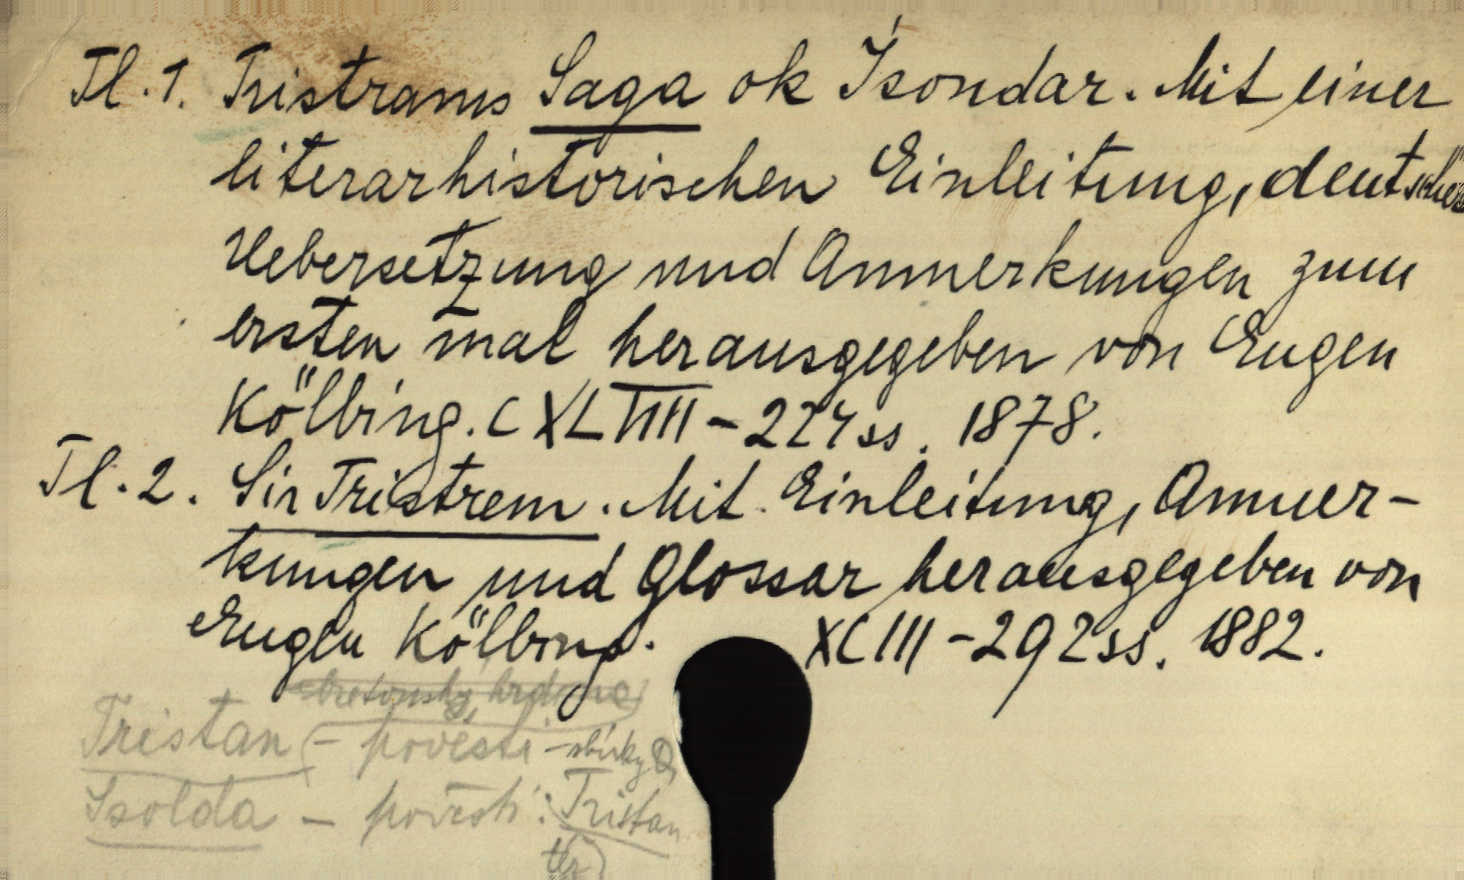 Tl. 1. Tristrams Saga ok Isondar. Mit einer
literarhistorischen Einleitung, deutscher
Uebersetzung und Anmerkungen zum
ersten mal herausgegeben von Eugen
Kölbing. CXLVIII - 224 ss. 1878.
Tl. 2. Sir Tristrem. Mit Einleitung, Anmer-
kungen und Glossar herausgegeben von
Eugen Kölbing. XCIII - 292 ss. 1882.
Tristan - pověsti - sbírky
Isolda - pověsti: Tristan